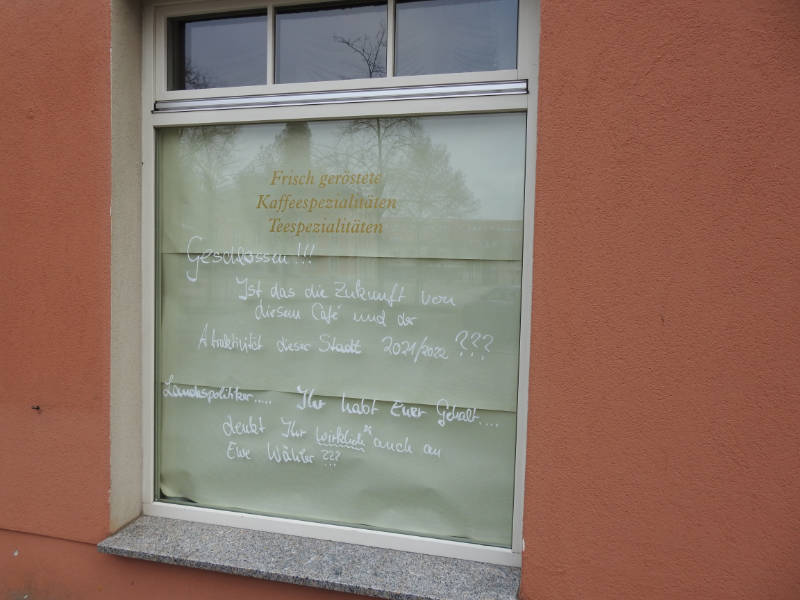 Frisch geröstete
Kaffeespezialitäten
Teespezialitäten
Geschlossen!!!
Ist das die Zukunft von
diesem Café und der
Atraktivität dieser Stadt 2021/2022 ???
Landespolitiker..... Ihr habt Euer Gehalt....
denkt Ihr wirklich auch an
Eure Wähler ???